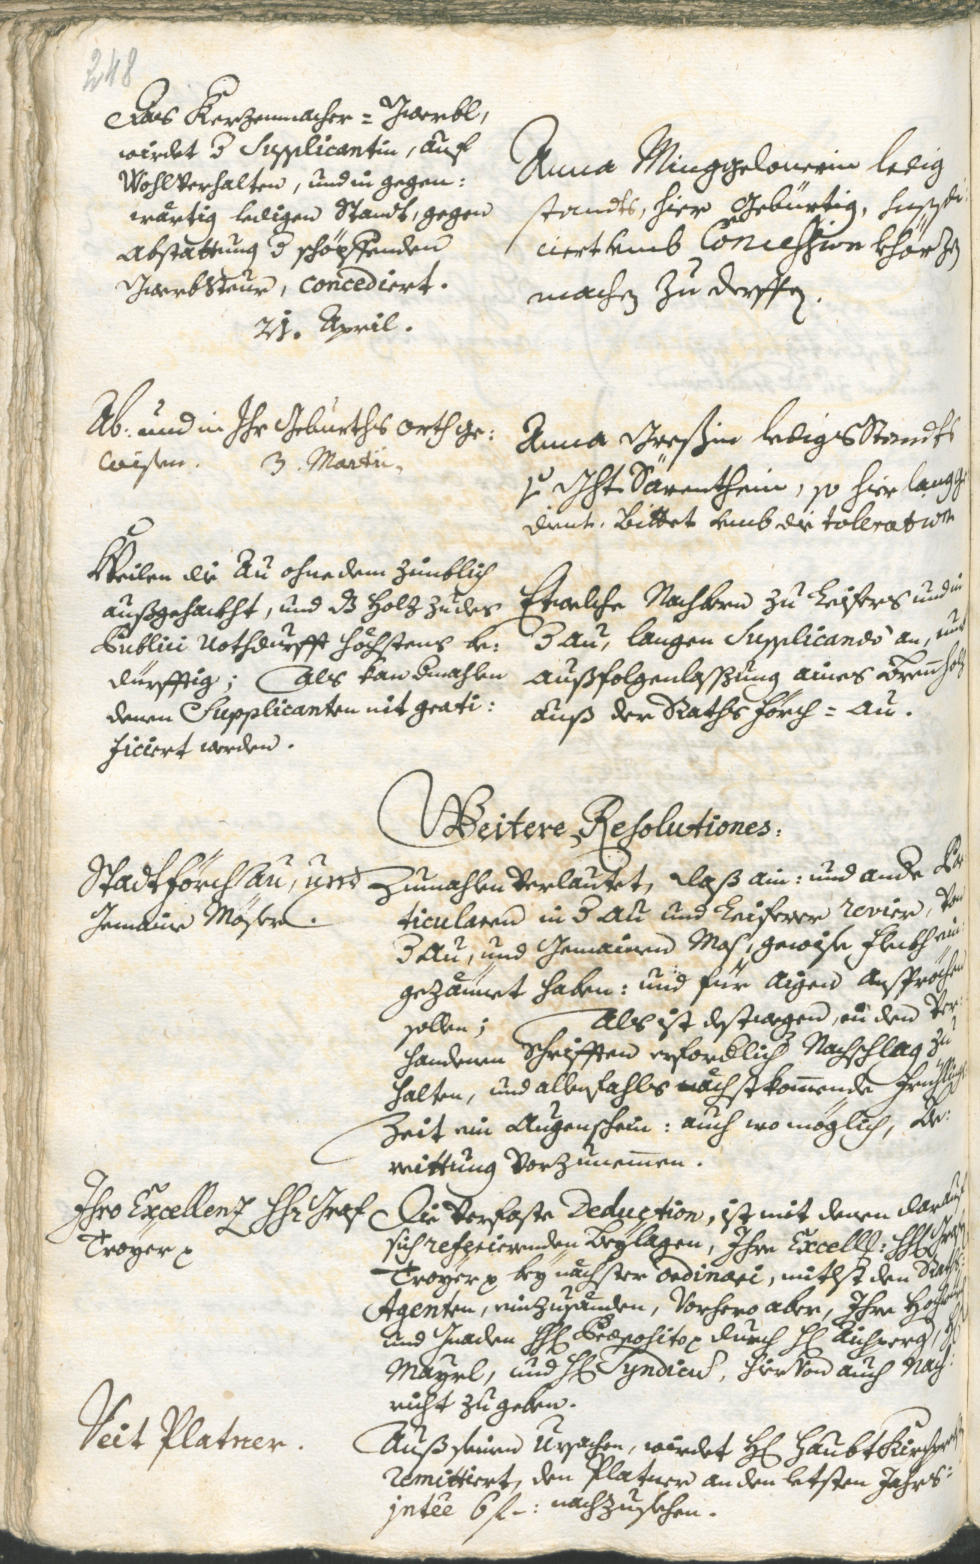 248
Das Kerzenmacher = Gwerbl,
wirdet d Supplicantin, auf
Wohlverhalten, und in gegen:
wärtig ledigen Standt, gegen
Abstattung d schöpffenden
Gwerbsteur, concediert.
21. April.
Anna Minggelonerin ledig
standts, hier gebürtig, suppli
ciert umb Concession khörzen
machen zu derffen.
Ab: und in Ihr Geburths orth ge:
wisen. 3. Martii.
Anna Greßin ledigs Standts
Ght Särenthein, so hier lang ge
dient, bittet umb die tolleration
Weilen die Au ohne dem zimblich
außgehackht, und dz Holz zu des
Publici Nothdurfft höchstens be:
dürfftig; Als kan dmahlen
denen Supplicanten nit grati:
ficiert werden.
Etwelche Nachbern zu Leifers und in
d Au, langen Supplicando an, umb
außfolgenlassung aines Brennholz
auß der Raths förch = Au.
Weitere Resolutiones.
Stadt förch Au, und
Gemaine Möser.
Zumahlen verlautet, daß ain: und ande Par
ticularen in d Au und Leiferer revier, von
d Au, und Gemainen Mos, gewise flekh ein
gezäunet haben: und für aigen ansprechen
sollen; Als ist destwegen, in den vor
handenen Schrifften erforderlich Nachschlag zu
halten, und allenfahls nächstkommende Frühlings
Zeit ein Augenschein: auch wo möglich, Be:
reittung vorzunemmen.
Ihro Excellenz Hhr Graf
Troyer p
Die verfaste Deduction, ist mit denen darauf
sich referierenden beylagen, Ihro Excellz: HH Graf
Troyer p bey nächster ordinari, mitlst den Raths
Agenten, einzusenden, Vorhero aber, Ihro Hochwürden
und Gnaden HH Praeposito p durch H Aichperg, H
Mayrl, und H Syndicus, hiervon auch Nach:
richt zu geben.
Veit Platner.
Auß seinen Ursachen, wirdet H Haubt Kirchprobst
remittiert, den Platner an den letsten Jahrs:
intee 6 f –: nachzusehen.